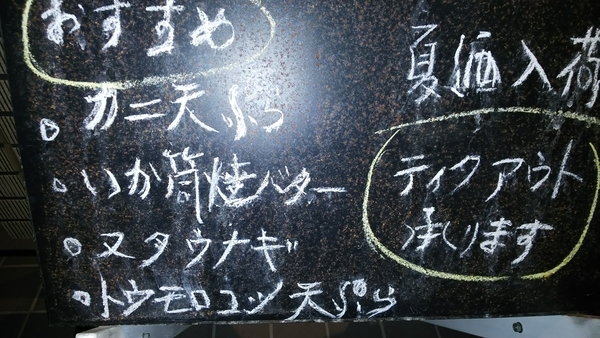 おすすめ
カニ天
いか筒焼バター
ヌタウナギ
トウモロコシ天ぷら
夏 入荷
テイクアウト
承ります